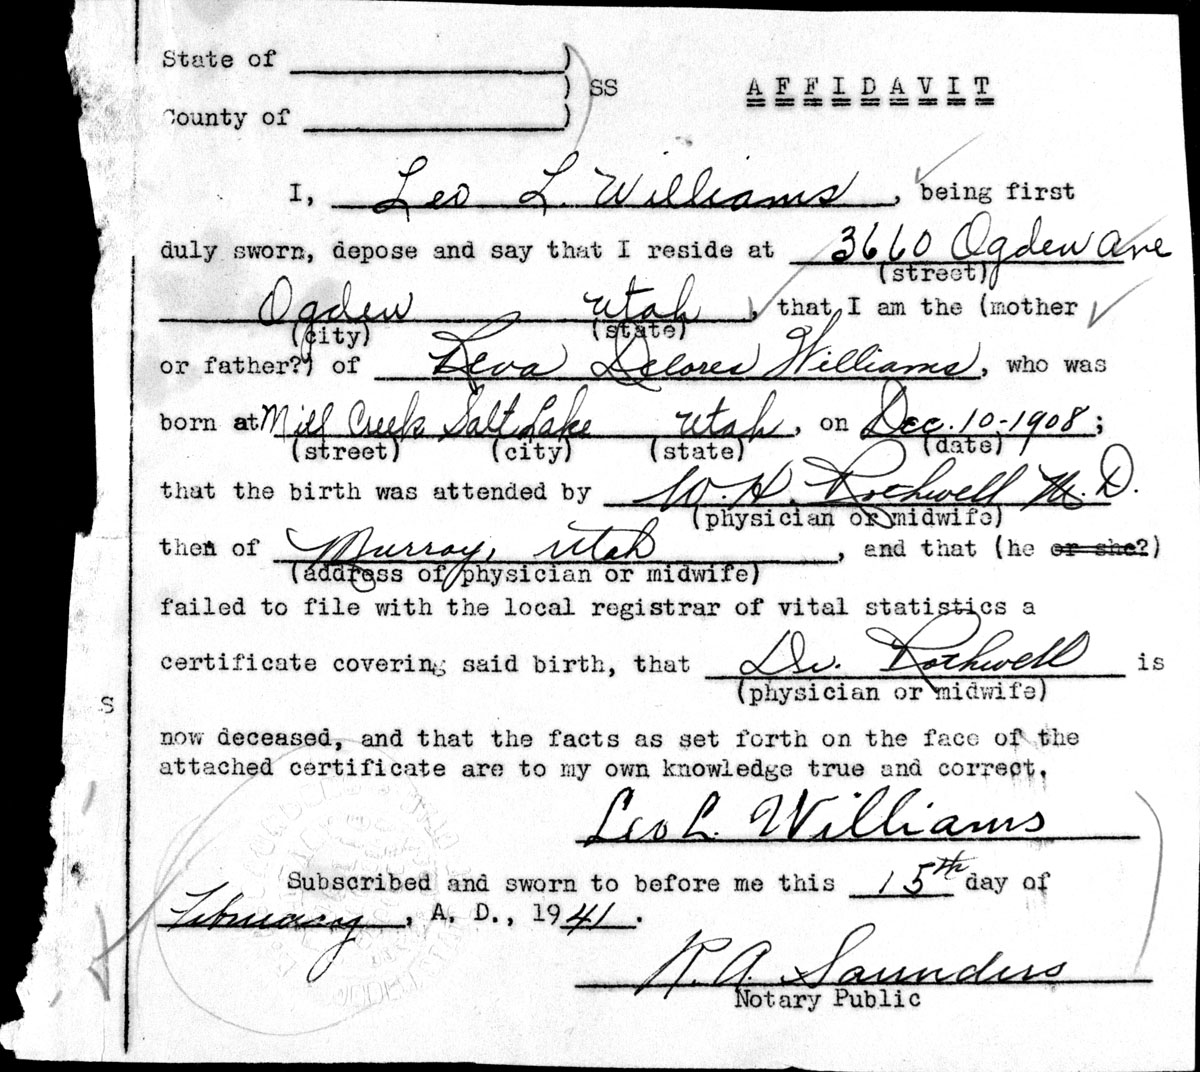 State of ____________ )
) SS AFFIDAVIT
County of ____________ )
I, Leo L. Williams, being first
duly sworn, depose and say that I reside at 3660 Ogden Ave
(street)
Ogden Utah, that I am the (mother
(city) (state)
or father?) of Reva Delores Williams, who was
born at Mill Creek Salt Lake Utah, on Dec. 10-1908;
(street) (city) (state) (date)
that the birth was attended by W. H. Rothwell M. D.
(physician or midwife)
then of Murray, Utah, and that (he or she?)
(address of physician or midwife)
failed to file with the local registrar of vital statistics a
certificate covering said birth, that Dr. Rothwell is
(physician or midwife)
S
now deceased, and that the facts as set forth on the face of the
attached certificate are to my own knowledge true and correct.
Leo L. Williams
Subscribed and sworn to before me this 15th day of
February, A. D., 1941.
R. A. Saunders
Notary Public